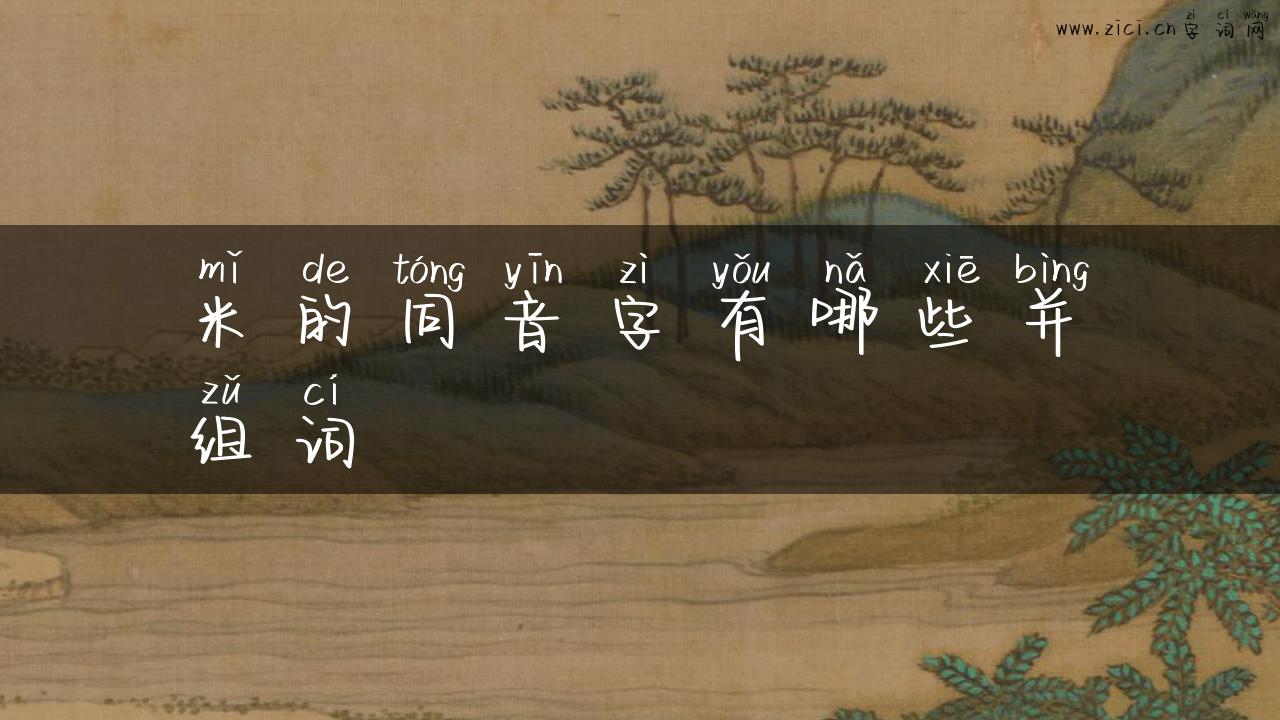 zì cí wǎng
www.zici.cn 字词网
mǐ de tóng yīn zì yǒu nǎ xiē bìng
米的同音字有哪些并
zǔ cí
组词